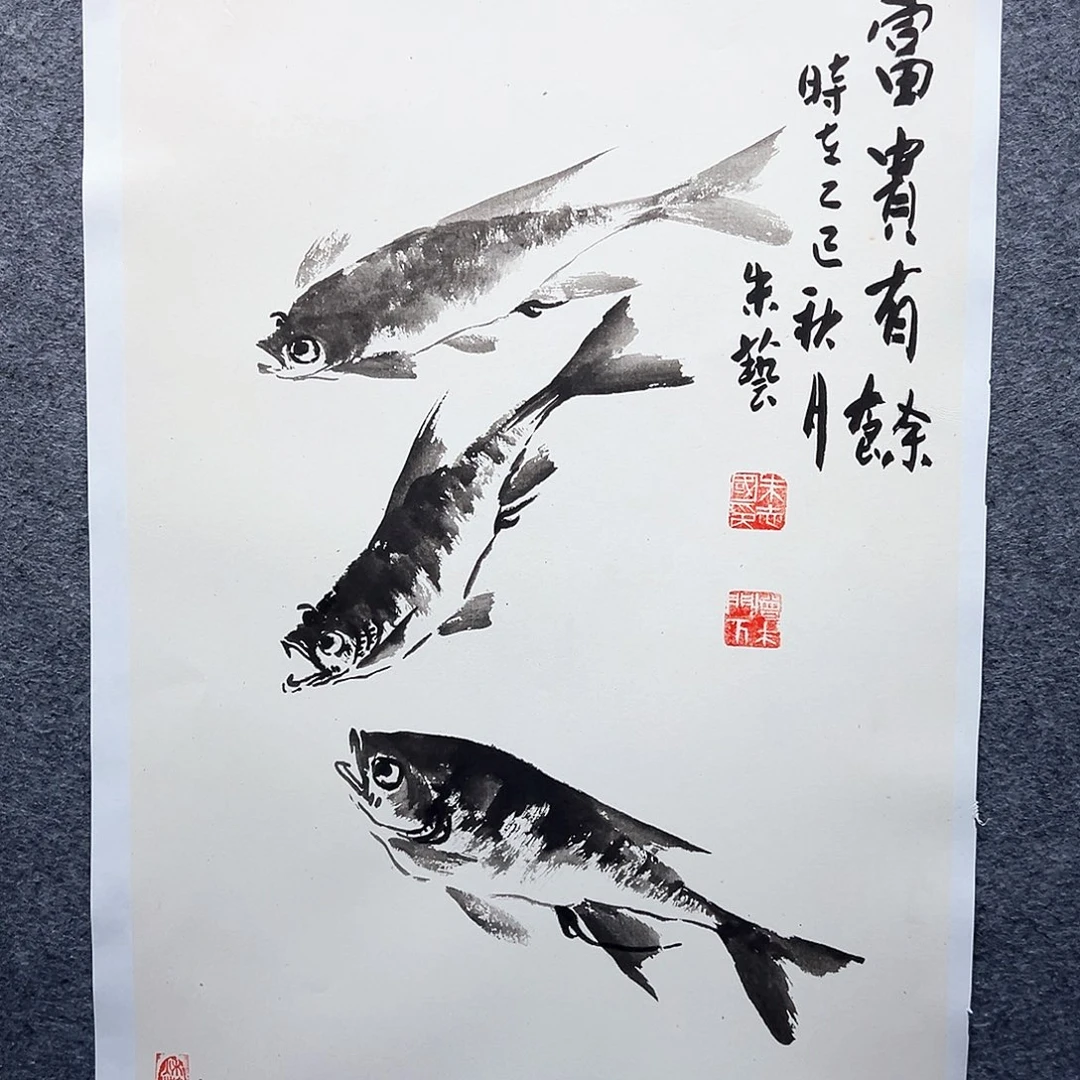 富貴有餘
時在乙巳秋月
朱藝
朱志國
門下